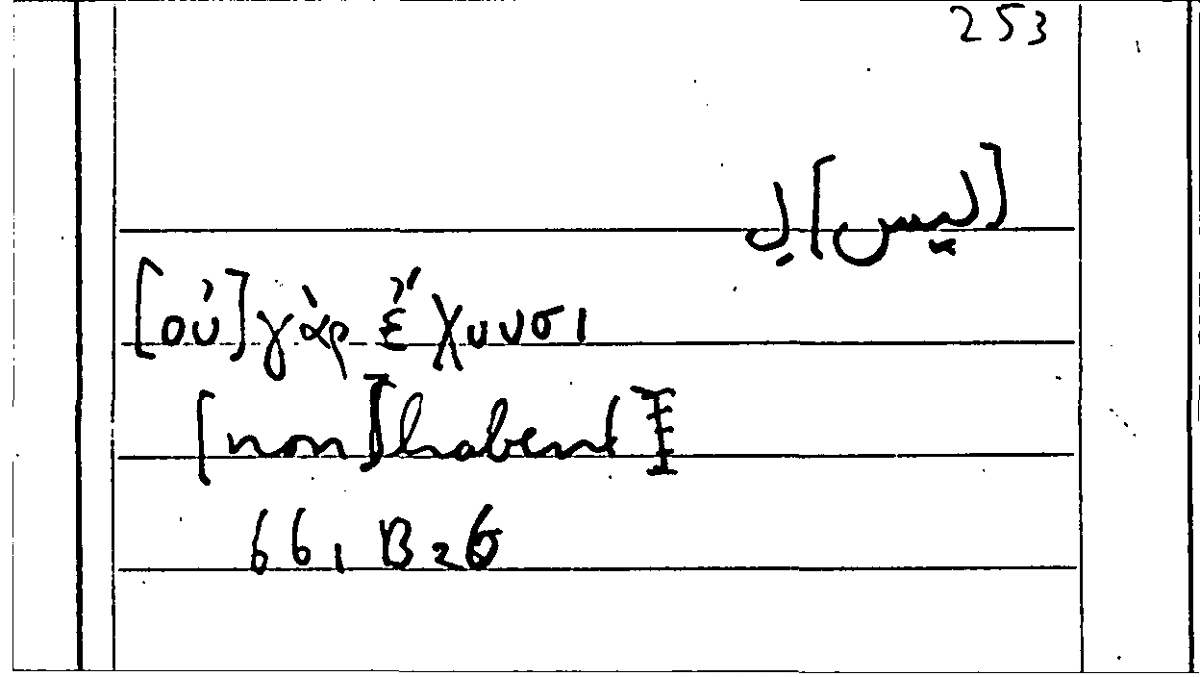 253
[ليس] لِ
[οὐ] γὰρ ἔχουσι
[non] habent
66, B 26